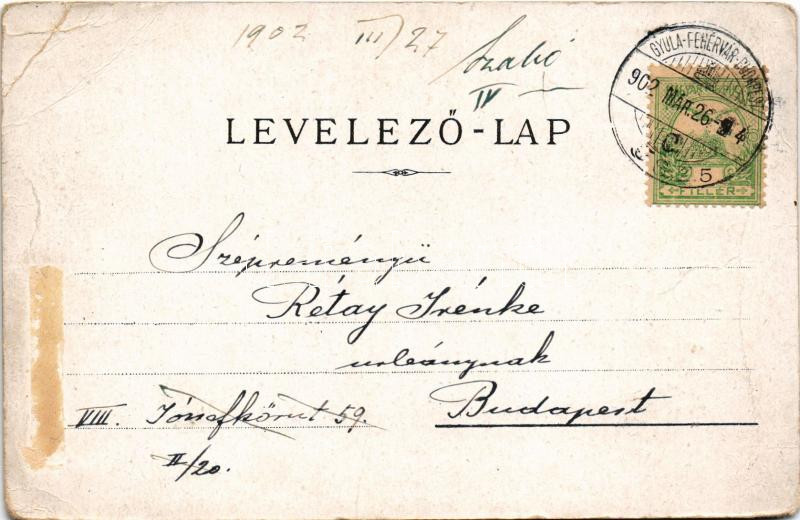 1902 III/27
Szabó
IV
GYULA-FEHÉRVÁR
902 MÁR. 26
C
5
FILLÉR
LEVELEZŐ-LAP
Szépreményü
Rétay Irénke
urleánynak
VIII. Józsefkörut 59. Budapest
II/20.